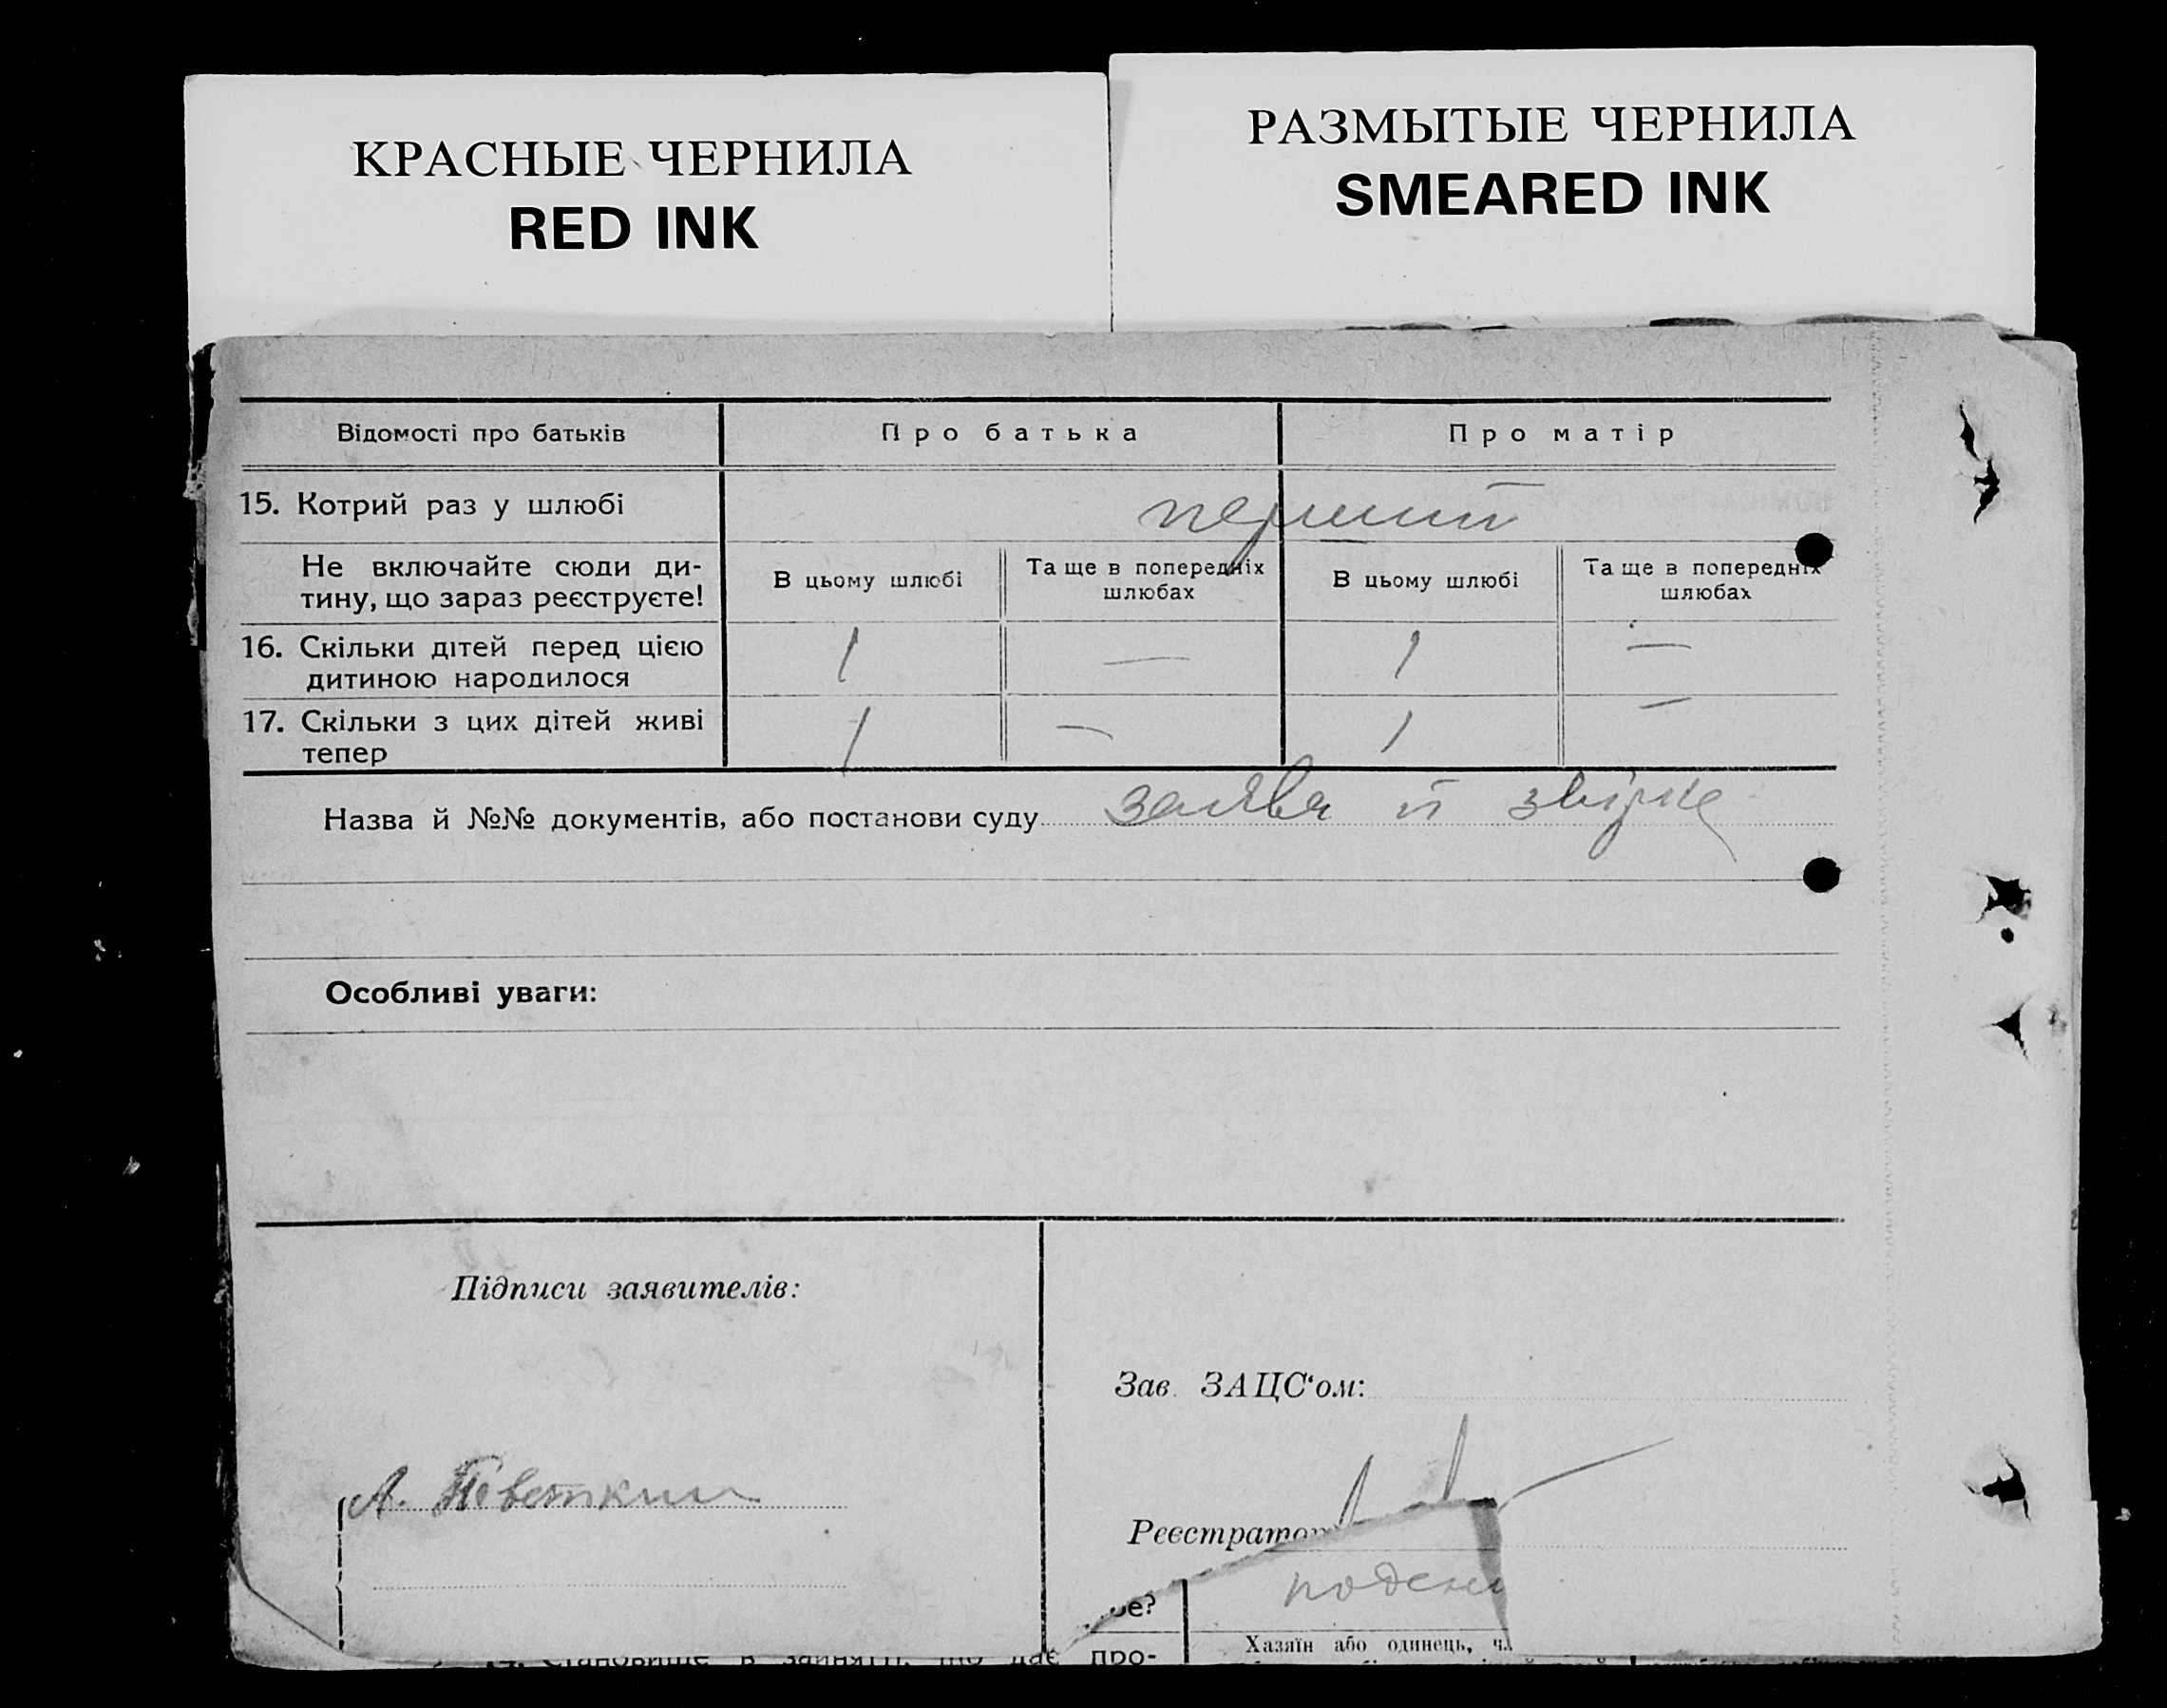 КРАСНЫЕ ЧЕРНИЛА
RED INK
РАЗМЫТЫЕ ЧЕРНИЛА
SMEARED INK
Відомості про батьків
Про батька
Про матір
15. Котрий раз у шлюбі
перший
Не включайте сюди ди-
тину, що зараз реєструєте!
В цьому шлюбі
Та ще в попередніх
шлюбах
В цьому шлюбі
Та ще в попередніх
шлюбах
16. Скільки дітей перед цією
дитиною народилося
1 — 1 —
17. Скільки з цих дітей живі
тепер
1 — 1 —
Назва й №№ документів, або постанови суду заява й
Особливі уваги:
Підписи заявителів:
Зав. ЗАЦС‘ом:
А.
Реєстратор
ре?
Хазяїн або одинець, ч.
14. Становище в занятті, що дає про-